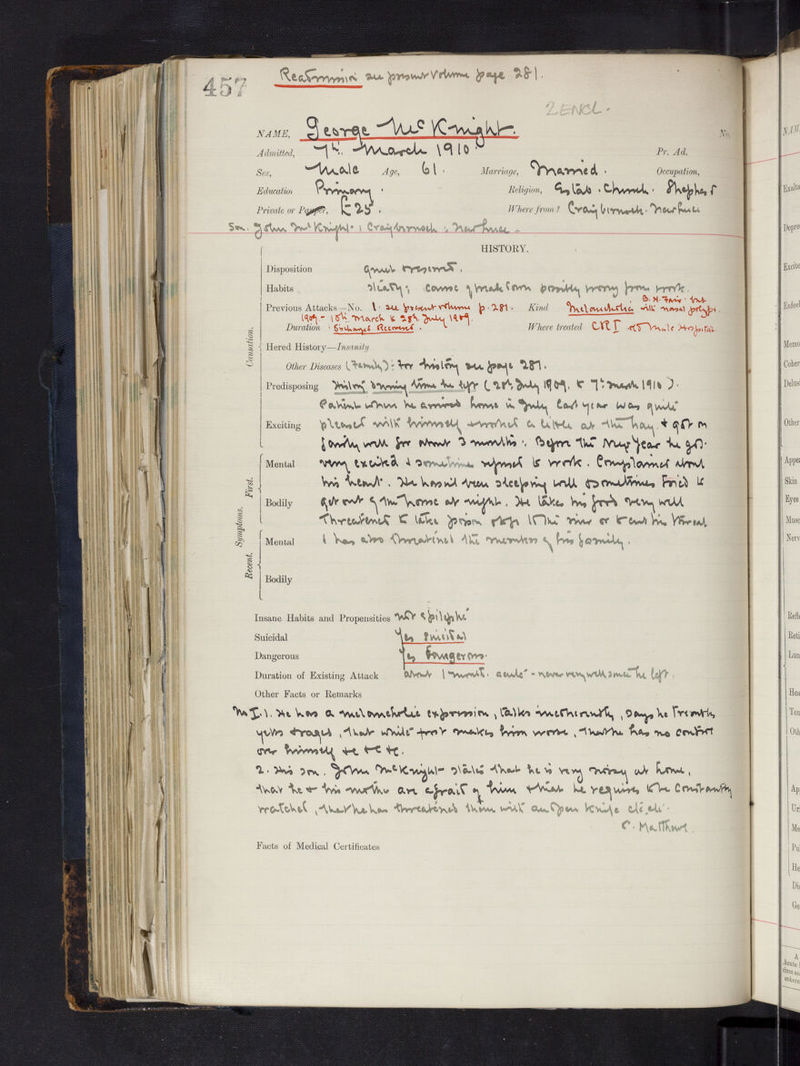 457
Readmission see present Volume page 281.
2 ENCL.
NAME, George McKnight. No.
Admitted, 7th. March 1910 Pr. Ad.
Sex, Male Age, 61. Marriage, Married. Occupation,
Education Primary. Religion, Estab. Church. Shepherd
Private or Pauper, £25. Where from? Craigbirnoch. New Luce
Son. John McKnight. Craigbirnoch, New Luce.
HISTORY.
Disposition quiet reserved.
Habits steady; cause of breakdown possibly worry from work.
Previous Attacks—No. 1. see present volume p. 281. Kind Melancholia with nasal polypi.
1909 - 15th March to 28th July 1909.
Duration Discharged Recovered. Where treated C.R.I. Male Hospital
Causation.
Hered History—Insanity
Other Diseases (Family): for history see page 281.
Predisposing History during time he left (28th July 1909. to 7th March 1910).
Patient when he arrived home in July last year was quite
Exciting pleased with himself worked a little at the hay, & got on
fairly well for about 3 months. Before the New Year he got
Symptoms. First. Recent.
Mental very excited & sometimes refused to work. Complained about
his head. He has not been sleeping well & sometimes tried to
Bodily get out of the house at night. He takes his food very well
Threatened to take poison, step into the river or to cut his throat
Mental & has also threatened the members of his family.
Bodily
Insane Habits and Propensities not epileptic
Suicidal Yes Suicidal
Dangerous Yes Dangerous.
Duration of Existing Attack about 1 month. acute - never very well since he left.
Other Facts or Remarks
M.C. 1. He has a melancholic expression, talks incoherently, says he trembles,
yells & rages, that makes him worse, that he has no control
over himself etc etc.
2. His son, John McKnight states that he is very noisy at home,
that he & his mother are afraid of him & that he requires to be constantly
watched, that he has threatened them with an open knife etc. etc.
C. Matthew
Facts of Medical Certificates